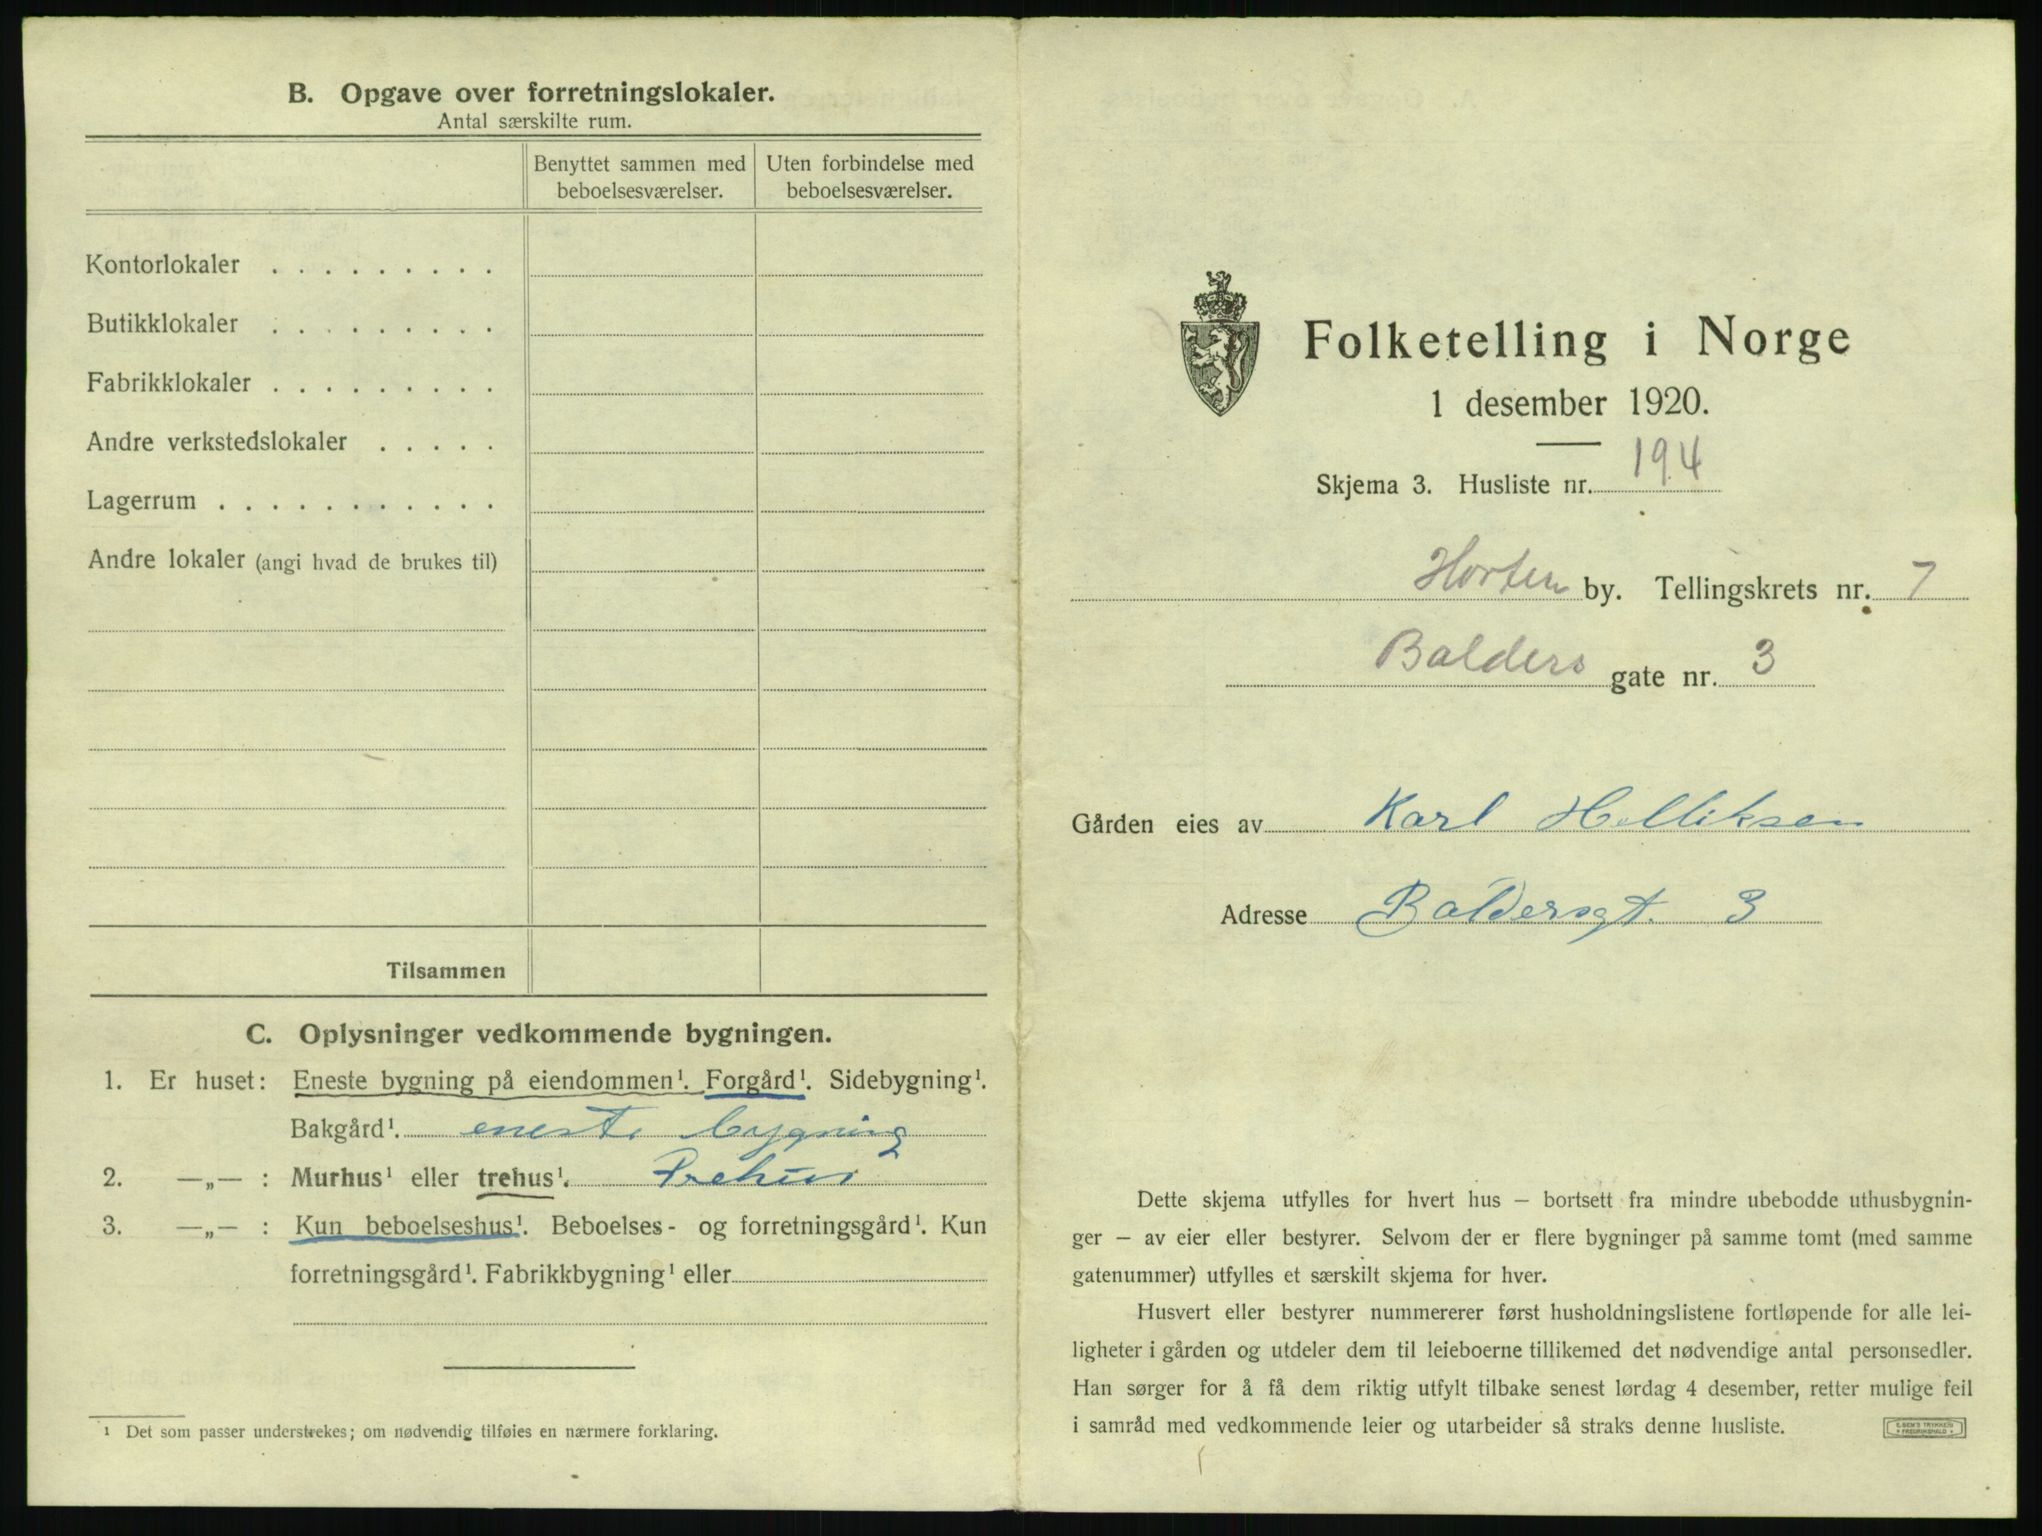 B. Opgave over forretningslokaler.
Antal særskilte rum.
Benyttet sammen med beboelsesværelser.
Uten forbindelse med beboelsesværelser.
Kontorlokaler . . . . . . . . .
Butikklokaler . . . . . . . . .
Fabrikklokaler . . . . . . . . .
Andre verkstedslokaler . . . . .
Lagerrum . . . . . . . . . . .
Andre lokaler (angi hvad de brukes til)
Tilsammen
C. Oplysninger vedkommende bygningen.
1. Er huset: Eneste bygning på eiendommen¹. Forgård¹. Sidebygning¹.
Bakgård¹. eneste bygning
2. —„— : Murhus¹ eller trehus¹. Trehus
3. —„— : Kun beboelseshus¹. Beboelses- og forretningsgård¹. Kun
forretningsgård¹. Fabrikkbygning¹ eller
¹ Det som passer understrekes; om nødvendig tilføies en nærmere forklaring.
Folketelling i Norge
1 desember 1920.
Skjema 3. Husliste nr. 194
Horten by. Tellingskrets nr. 7
Balders gate nr. 3
Gården eies av Karl Helliksen
Adresse Baldersgt. 3
Dette skjema utfylles for hvert hus – bortsett fra mindre ubebodde uthusbygnin-
ger – av eier eller bestyrer. Selvom der er flere bygninger på samme tomt (med samme
gatenummer) utfylles et særskilt skjema for hver.
Husvert eller bestyrer nummererer først husholdningslistene fortløpende for alle lei-
ligheter i gården og utdeler dem til leieboerne tillikemed det nødvendige antal personsedler.
Han sørger for å få dem riktig utfylt tilbake senest lørdag 4 desember, retter mulige feil
i samråd med vedkommende leier og utarbeider så straks denne husliste.
E. SEM'S TRYKKERI
FREDRIKSHALD